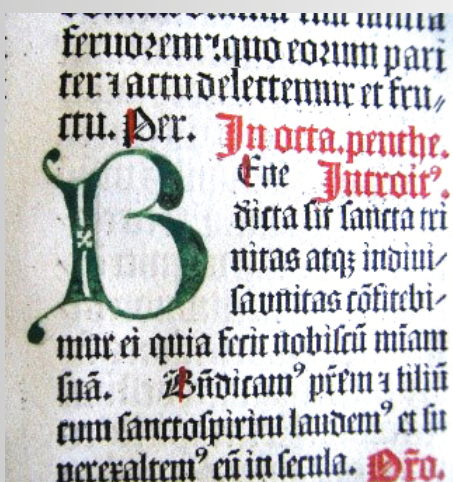 feruorem: quo eorum pari
ter ⁊ actu delectemur et fru⸗
ctu. Per. In octa. penthe.
BEne Introitꝰ.
dicta sit sancta tri
nitas atqꝫ indiui⸗
sa vnitas cōfitebi⸗
mur ei quia fecit nobiscū miam
suā. Bn̄dicamꝰ prēm ⁊ filiū
cum sanctospiritu laudemꝰ et su
perexaltemꝰ eū in secula. Oro.